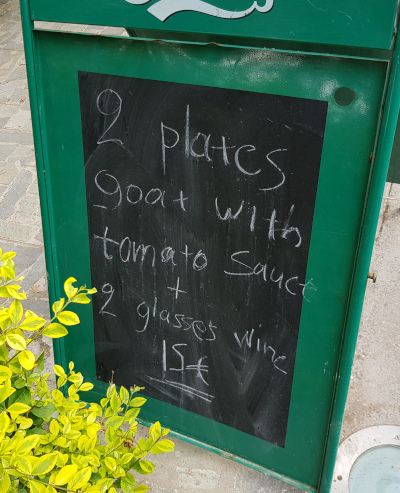 2 plates
goat with
tomato sauce
+
2 glasses wine
15€